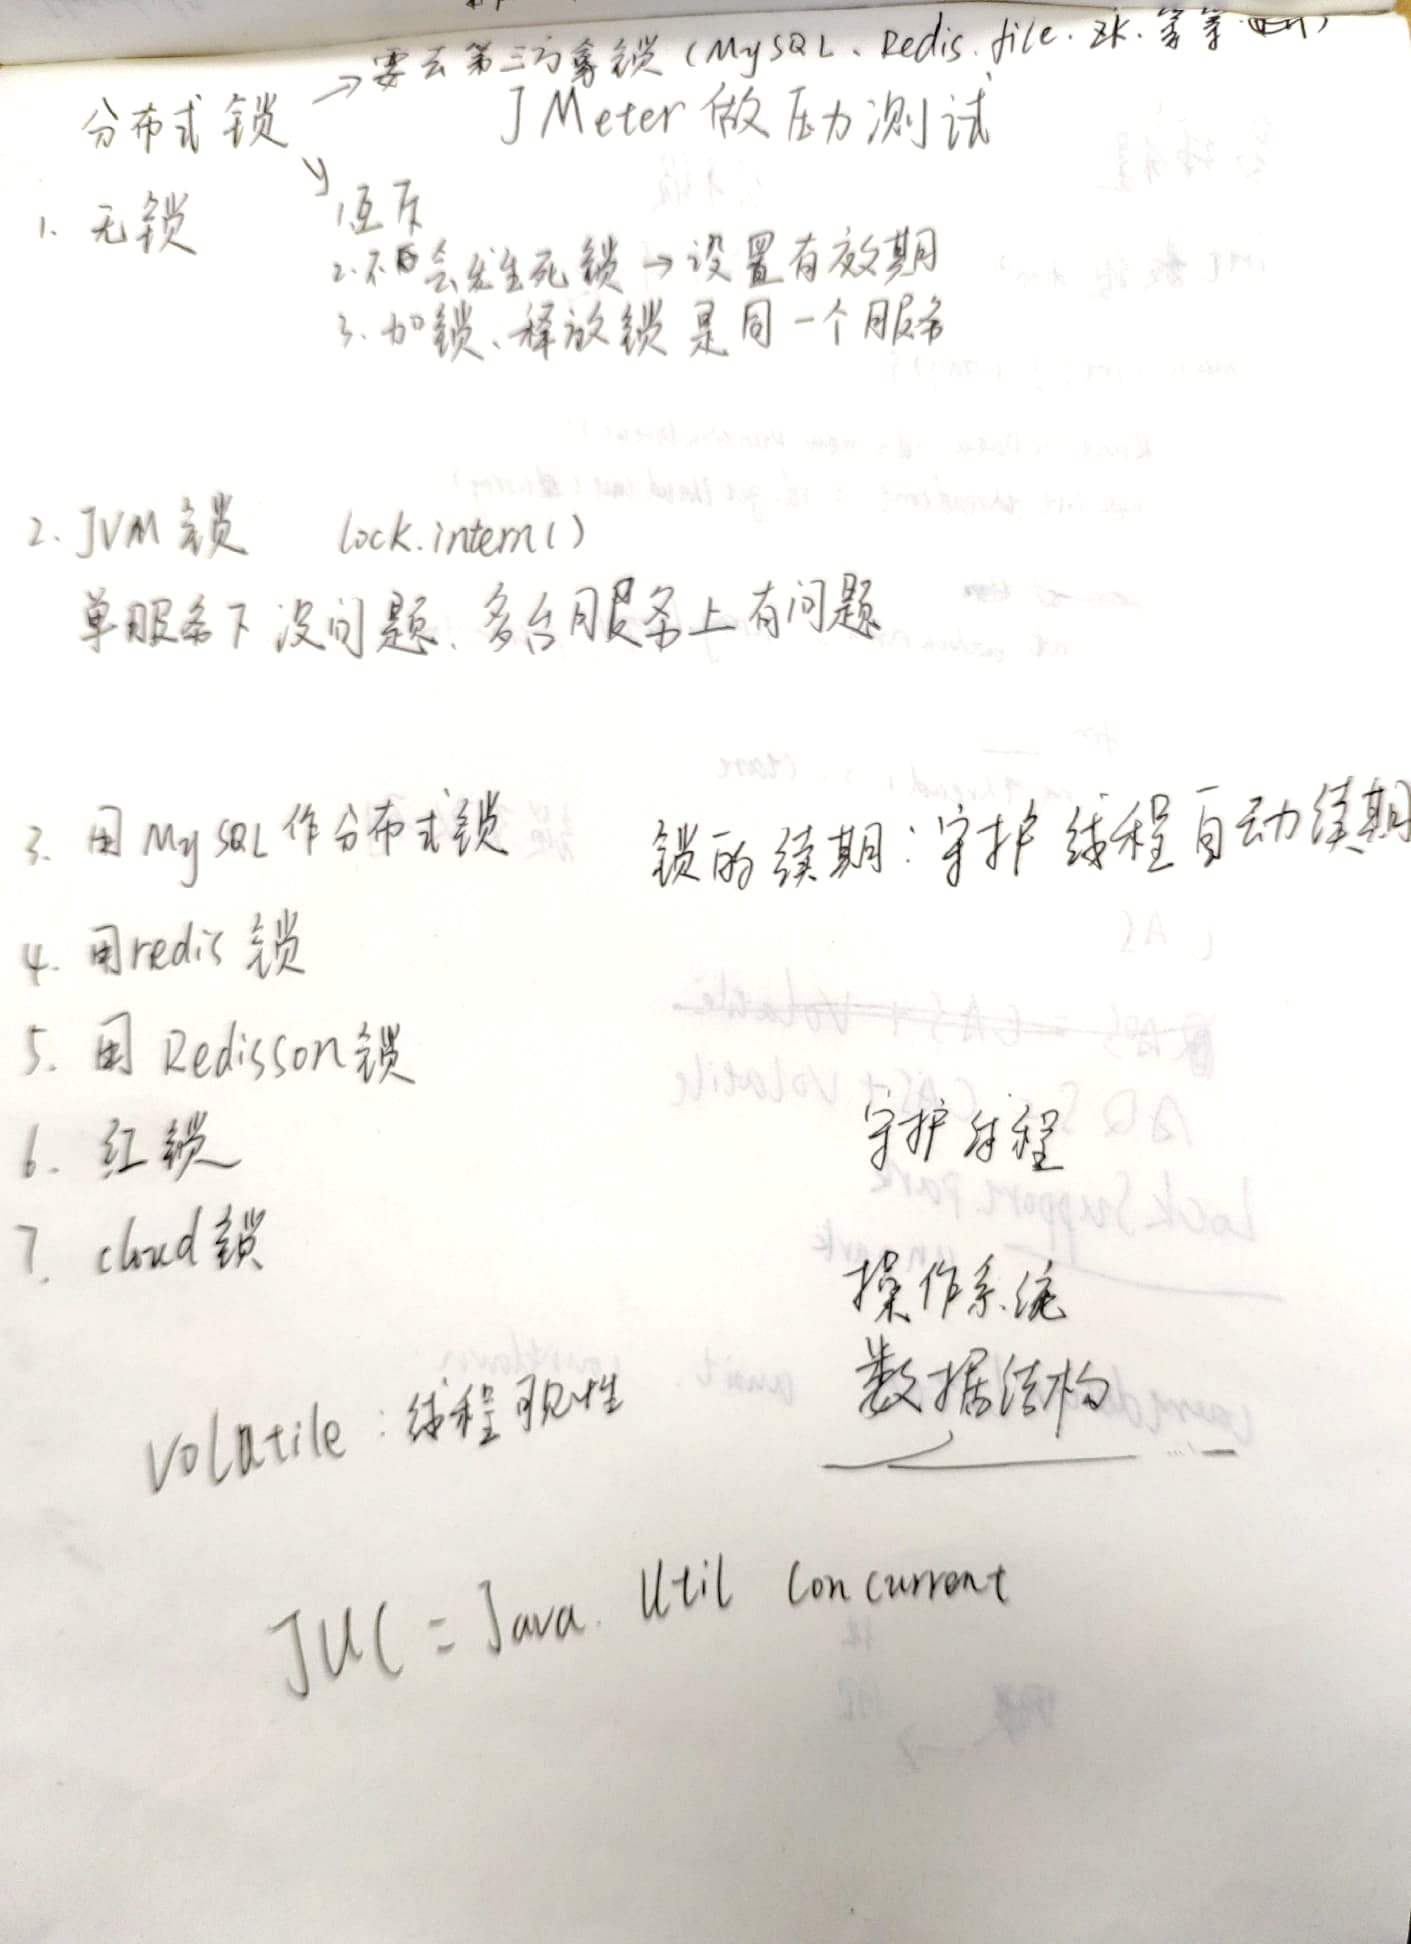 →要去第三方拿锁(MySQL、Redis.file.zk.等等)
分布式锁
JMeter 做压力测试
1. 无锁
1互斥
2.不会发生死锁→设置有效期
3.加锁、释放锁是同一个服务
2.JVM锁 lock.intern()
单服务下没问题、多台服务上有问题
3. 用MySQL作分布式锁
锁的续期:守护线程自动续期
4. 用redis锁
5. 用Redisson锁
6. 红锁
守护线程
7. cloud锁
操作系统
数据结构
Volatile:线程可见性
JUC=Java. Util Concurrent